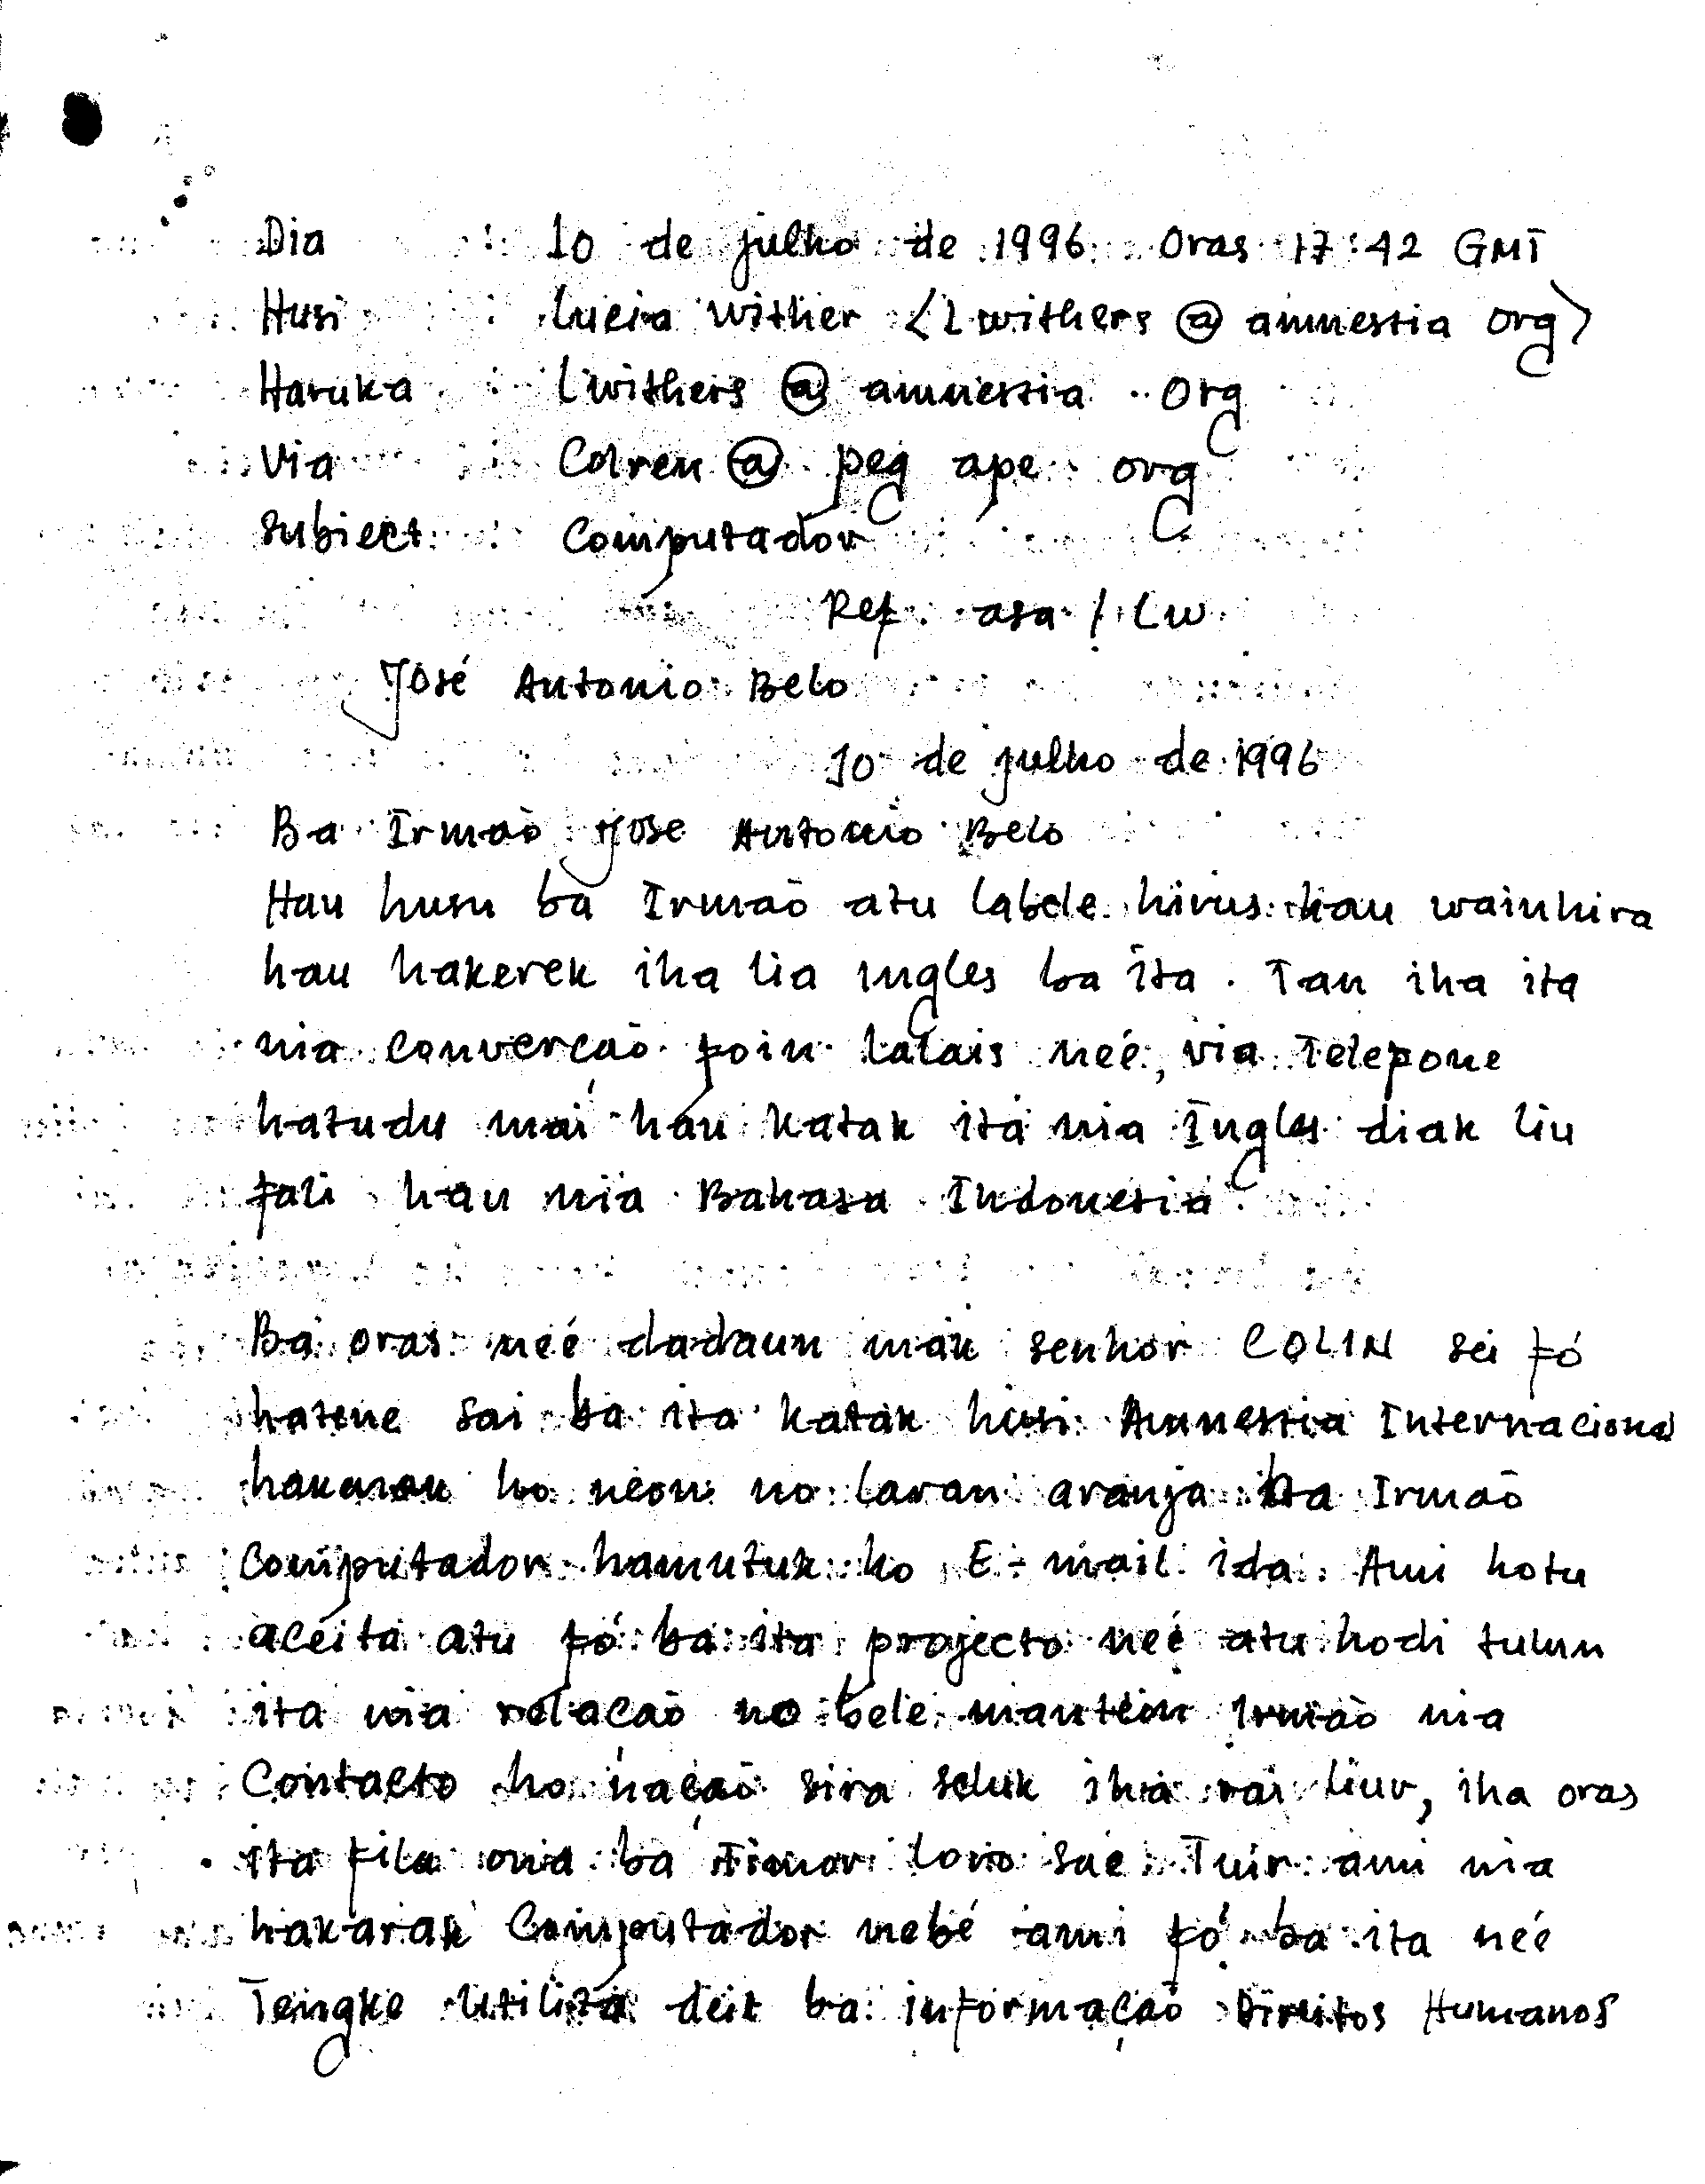 Dia : 10 de julho de 1996 Oras 17:42 GMT
Husi : Lucia Wither <Lwithers @ amnestia org>
Haruka : Lwithers @ amnestia . Org
Via : Colren @ peg ape. org
Subiect : Computador
Ref. asa / LW
José Antonio Belo
10 de julho de 1996
Ba Irmaõ Jose Antonio Belo
Hau husu ba Irmaõ atu labele hirus hau wainhira
hau hakerek iha lia ingles ba ita. Tan iha ita
nia converçaõ foin lalais neé, via Telepone
hatudu mai hau katak ita nia Ingles diak liu
fali hau nia Bahasa Indonesia.
Ba oras neé dadaun mak senhor COLIN sei fó
hatene sai ba ita katak husi Amnestia Internacional
hakarak ho neon no laran aranja ba Irmaõ
Computador hamutuk ho E-mail ida. Ami hotu
aceita atu fó ba ita projecto neé atu hodi tulun
ita nia relaçaõ no bele mantein Irmaõ nia
Contacto ho naçaõ sira seluk iha rai liur, iha oras
ita fila ona ba Timor loro sae. Tuir ami nia
hakarak Computador nebé ami fó ba ita neé
Tengke utiliza deit ba informaçaõ Direitos Humanos